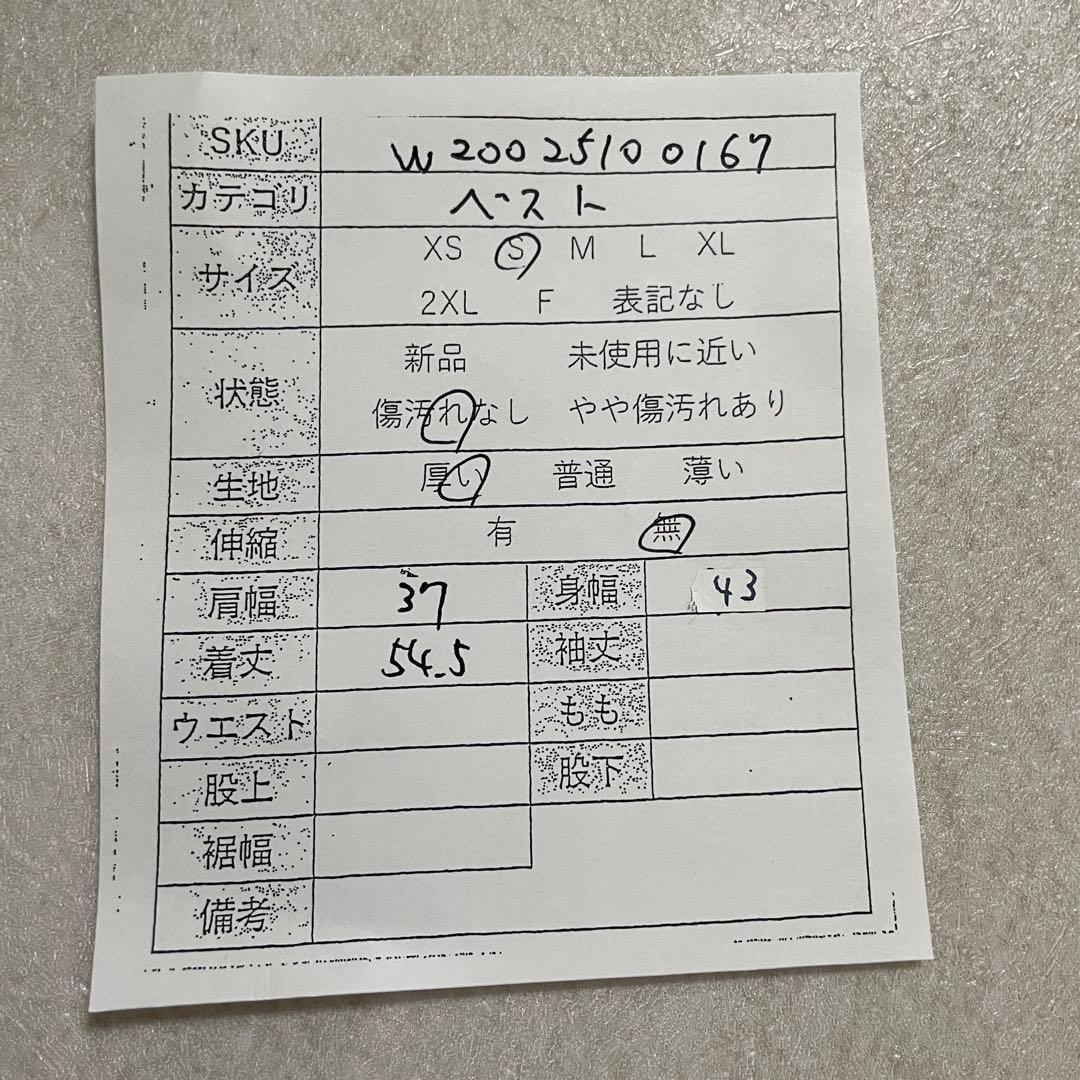 SKU W20025100167
カテゴリ ベスト
サイズ XS S M L XL
2XL F 表記なし
状態 新品 未使用に近い
傷汚れなし やや傷汚れあり
生地 厚い 普通 薄い
伸縮 有 無
肩幅 37 身幅 43
着丈 54.5 袖丈
ウエスト もも
股上 股下
裾幅
備考